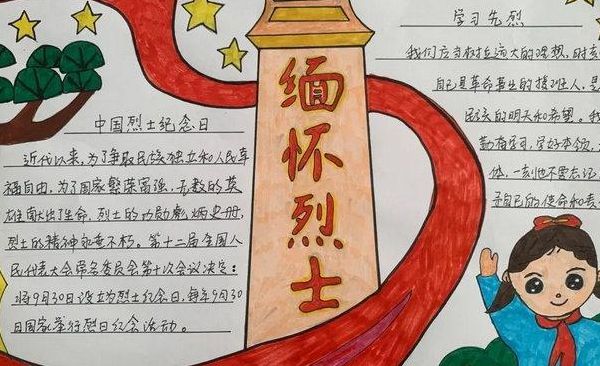 中国烈士纪念日
近代以来，为了争取民族独立和人民幸
福自由，为了国家繁荣富强，无数的英
雄献出了生命，烈士的功勋彪炳史册，
烈士的精神永垂不朽。第十二届全国人
民代表大会常务委员会第十次会议决定：
将9月30日设立为烈士纪念日，每年9月30
日国家举行烈日纪念活动。
缅怀烈士
学习先烈
我们应当树立远大的理想，时刻
自己是革命事业的接班人，是
民族的明天和希望。我
勤奋学习，学好本领，
体，一刻也不要忘记
自己的使命和责